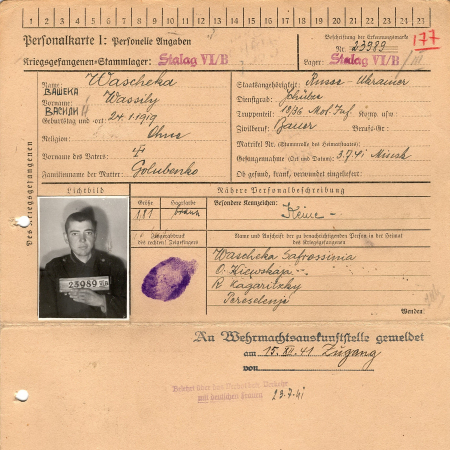 1 2 3 4 5 6 7 8 9 10 11 12 13 14 15 16 17 18 19 20 21 22 23 24 25
Personalkarte I: Personelle Angaben
Beschriftung der Erkennungsmarke
Nr. 23989
177
Kriegsgefangenen-Stammlager: Stalag VI/B
Lager: Stalag VI/B
Des Kriegsgefangenen
Name: Wascheka
ВАШЕКА
Vorname: Wassily
ВАСИЛИ
Geburtstag und -ort: 24.1.1919
Religion: Ohne
Vorname des Vaters:
Familienname der Mutter: Golubenko
Staatsangehörigkeit: Russe - Ukrainer
Dienstgrad: Schütze
Truppenteil: Mot. Inf. Komp. usw.
Zivilberuf: Bauer Berufs-Gr.:
Matrikel Nr. (Stammrolle des Heimatstaates):
Gefangennahme (Ort und Datum): 3.7.41 Minsk
Ob gesund, krank, verwundet eingeliefert:
Lichtbild
Nähere Personalbeschreibung
Größe
Haarfarbe
Besondere Kennzeichen:
181
braun
Keine -
Fingerabdruck
des rechten Zeigefingers
Name und Anschrift der zu benachrichtigenden Person in der Heimat
des Kriegsgefangenen
23989
Wascheka
O. Kiewskaja
R. Kagarlitzky
Wenden!
An Wehrmachtsauskunftstelle gemeldet
am 15.XII.41 Zugang
von
Belehrt über den Verkehr
mit deutschen Frauen 23.7.41